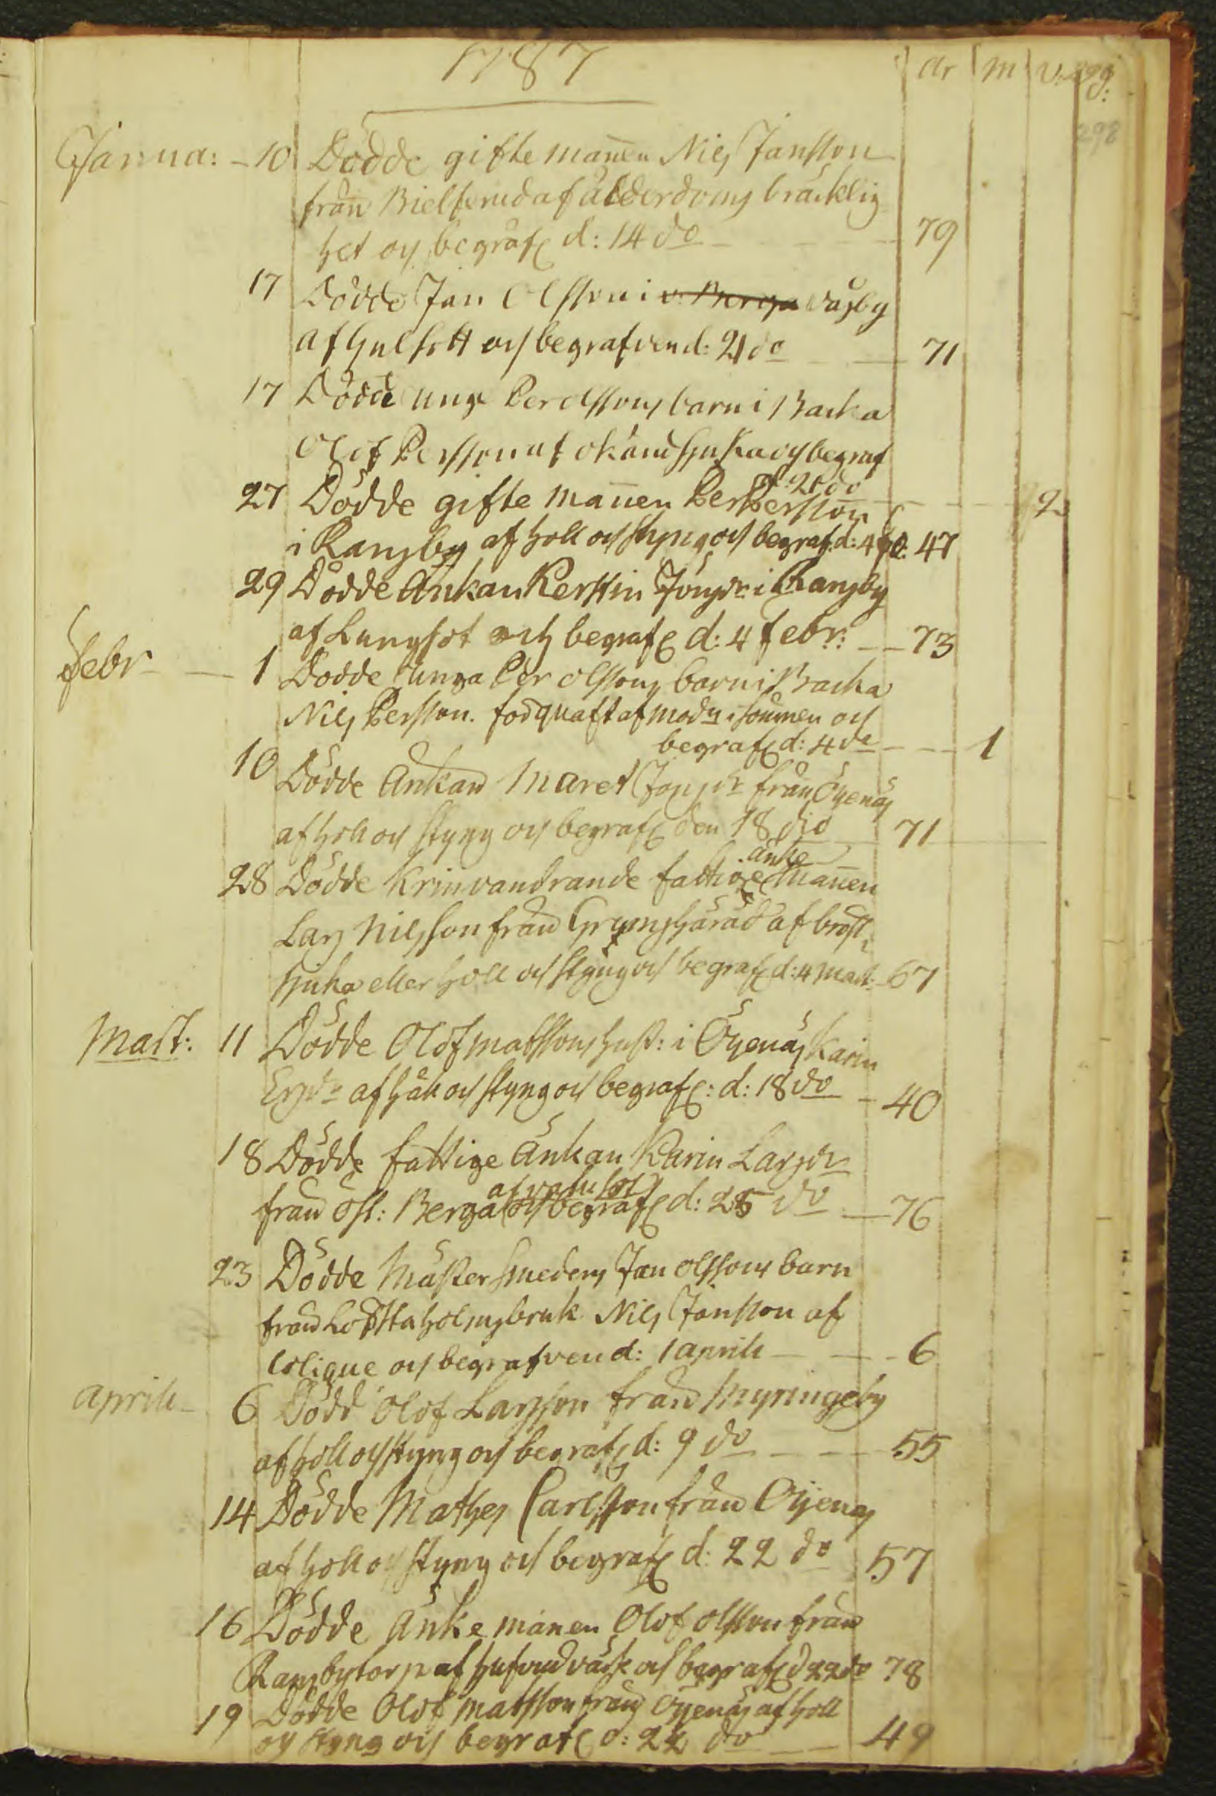 1787
år m v: dg:
298
Janua: - 10 Dödde gifte mannen Nils Jansson
från Bielkerud af ålderdoms bräcklig
het och begrafs d: 14 do - 79
17 Dödde Jan Olsson i v. Berga Väsby
af hulsott och begrafven d: 21 do - 71
17 Dödde unge Per olssons barn i Backa
Olof Persson af okänd sjuka och begraf
d: 21 do - 2
27 Dödde gifte mannen Per Persson
i Ransby af holl och styng och begraf d: 4 47
29 Dödde Änkan Kerstin Jonsdr i Ransby
af Lungsot och begrafs d: 4 febr: - 73
Febr - 1 Dödde Unga Per olssons barn i Backa
Nils Persson. fodquaft af modn i sömnen och
begrafs d: 4 de - 1
10 Dödde Ankan Maret Jonsdr från Öyenäs
af holl och styng och begrafs den 18 dio 71
änke
28 Dödde kringvandrande fattige mannen
Lars Nilsson från Gryms härad af bröst
sjuka eller holl och styng och begrafs d: 4 Mart: 67
Mart: 11 Dödde Olof matssons hust: i Öyenäs Karin
Ersdr af håll och styng och begrafs: d: 18 do - 40
18 Dödde fattige Änkan Karin Larsdr
från öst: Berga och begrafs d: 25 do - 76
23 Dödde Mäster smedens Jan olssons barn
från Lottstaholmsbruk Nils Jansson af
Colique och begrafven d: 1 aprili - 6
aprili - 6 Dödd Olof Larsson från Myringeby
af holl och styng och begrafs d: 9 do - 55
14 Dödde Mathes Carlsson från Öyenäs
af holl och styng och begrafs d: 22 do 57
16 Dödde Änke manen Olof olsson från
Ransbytorp af hufvudvärk och begrafs d 22 do 78
19 Dödde Olof Matsson från Öyenäs af holl
och styng och begrafs d: 22 do - 49